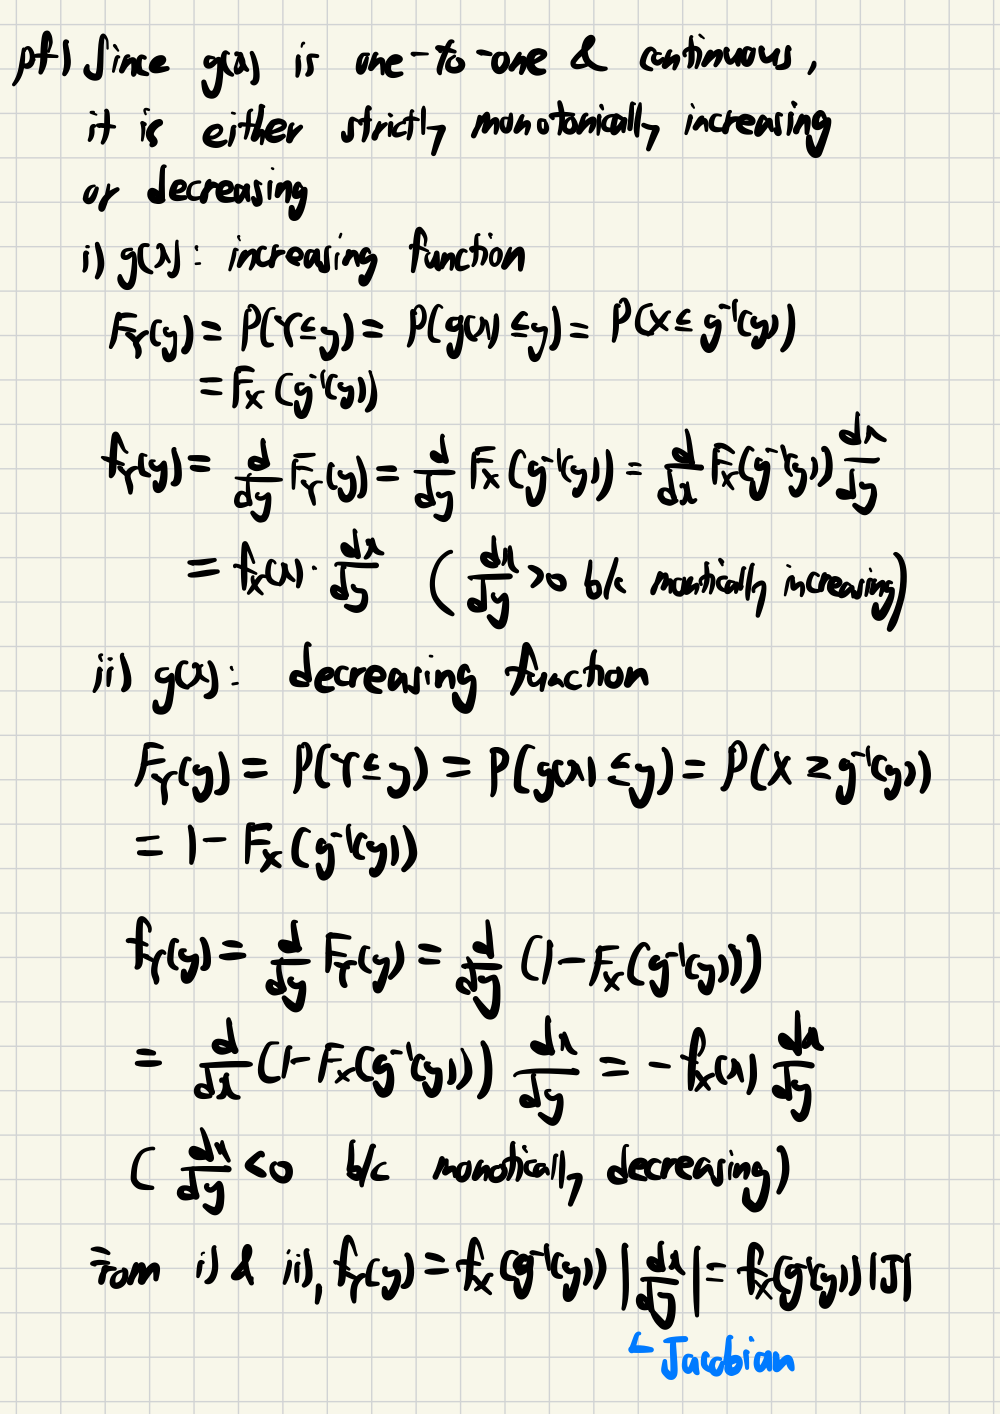 pf) Since g(x) is one-to-one & continuous,
it is either strictly monotonically increasing
or decreasing
i) g(x): increasing function
F_Y(y) = P(Y≤y) = P(g(x)≤y) = P(X≤g⁻¹(y))
= F_X(g⁻¹(y))
f_Y(y) = d/dy F_Y(y) = d/dy F_X(g⁻¹(y)) = d/dx F_X(g⁻¹(y)) dx/dy
= f_X(x) · dx/dy (dx/dy >0 b/c montically increasing)
ii) g(x): decreasing function
F_Y(y) = P(Y≤y) = P(g(x)≤y) = P(X≥g⁻¹(y))
= 1- F_X(g⁻¹(y))
f_Y(y) = d/dy F_Y(y) = d/dy (1-F_X(g⁻¹(y)))
= d/dx (1-F_X(g⁻¹(y))) dx/dy = -f_X(x) dx/dy
(dx/dy <0 b/c monotically decreasing)
From i) & ii), f_Y(y) = f_X(g⁻¹(y)) |dx/dy| = f_X(g⁻¹(y)) |J|
Jacobian